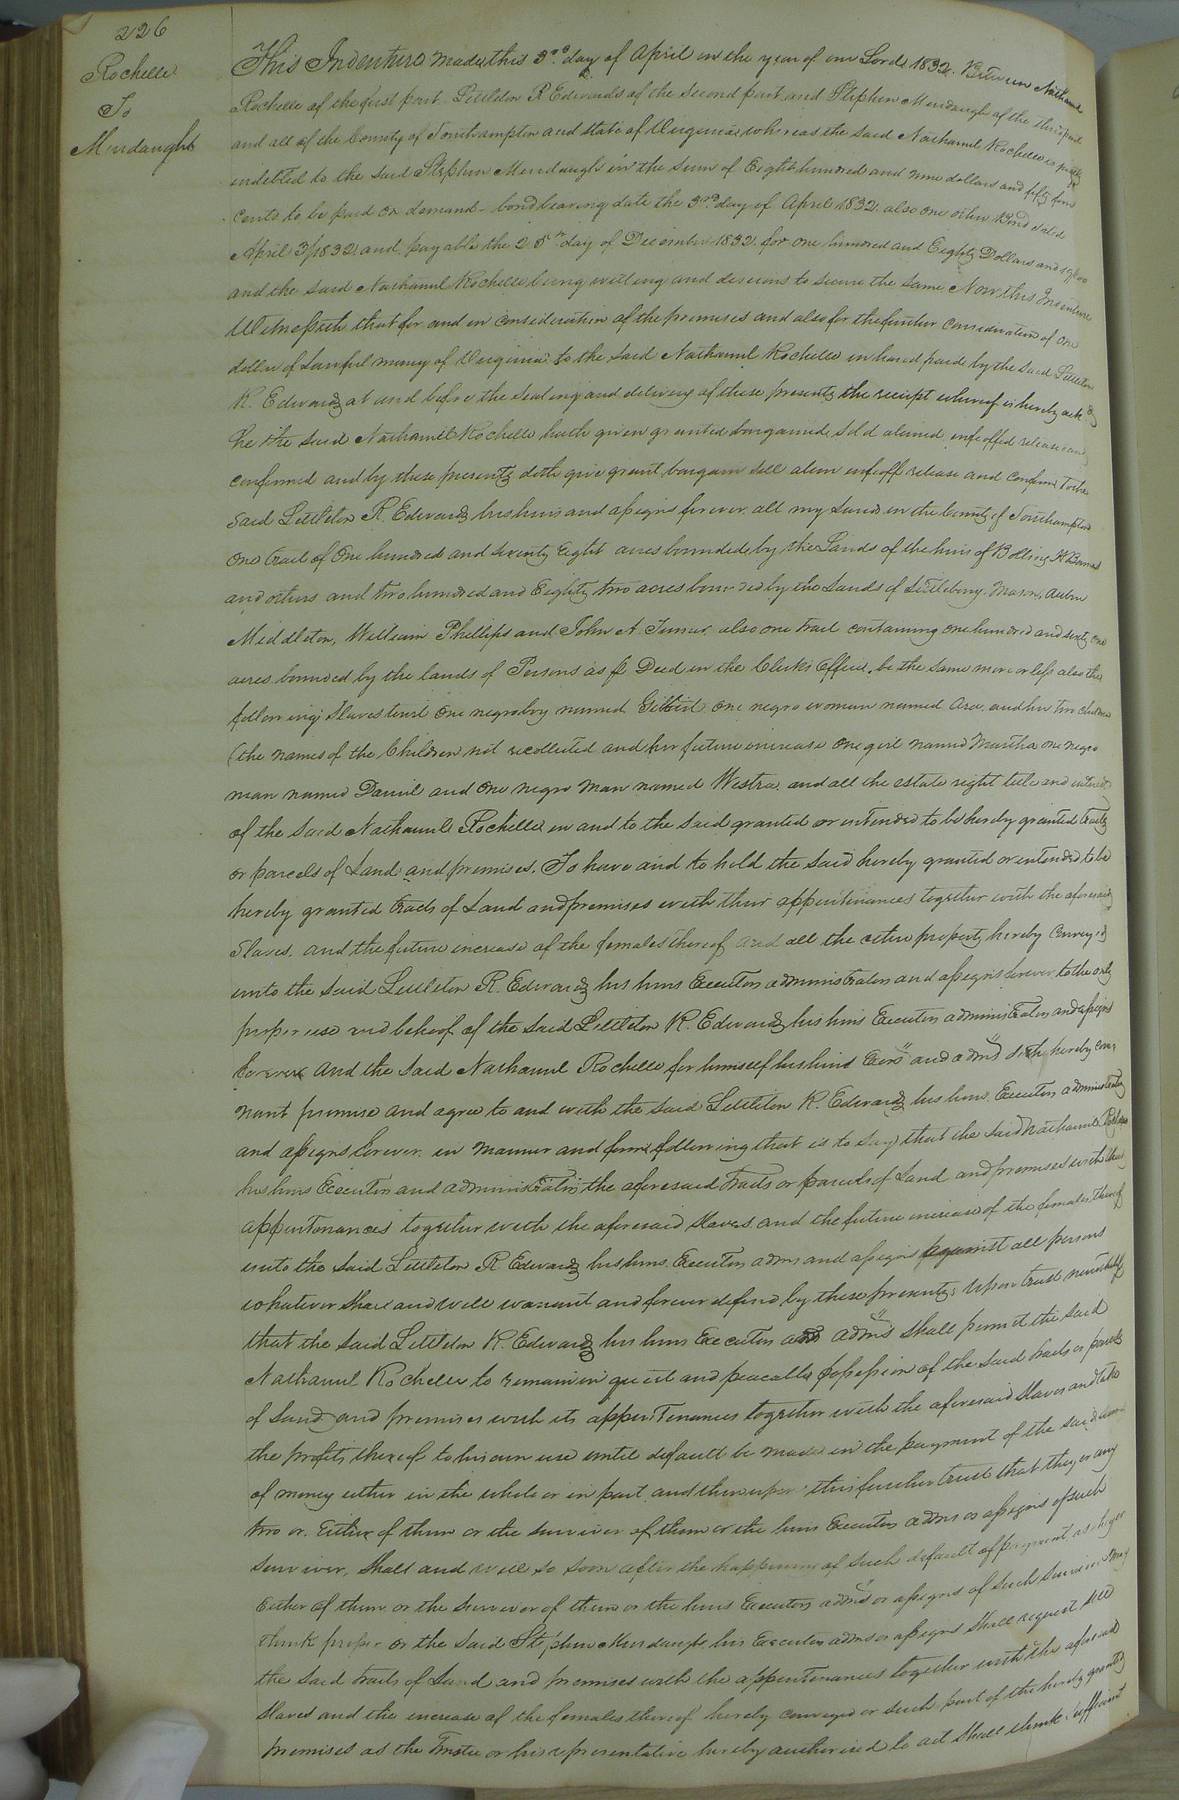 226
Rochelle
To
Murdaugh
This Indenture made this 3rd day of April in the year of our Lord 1832. Between Nathaniel
Rochelle of the first part Littleton R Edwards of the Second part and Stephen Murdaugh of the third part
and all of the County of Southampton and State of Virginia whereas the said Nathaniel Rochelle is justly
indebted to the said Stephen Murdaugh in the Sum of Eight hundred and nine dollars and fifty five
cents to be paid on demand - bond bearing date the 3rd day of April 1832. also one other Bond dated
April 3/1832. and payable the 25th day of December 1832. for one hundred and Eighty Dollars and
and the said Nathaniel Rochelle being willing and desirous to secure the same Now this Indenture
Witnesseth that for and in consideration of the premises and also for the further consideration of one
dollar of Lawful money of Virginia to the said Nathaniel Rochelle in hand paid by the said Littleton
R. Edwards at and before the Sealing and delivery of these presents the receipt whereof is hereby ack
he the said Nathaniel Rochelle hath given granted bargained Sold aliened enfeoffed released and
confirmed and by these presents doth give grant bargain Sell alien enfeoff release and confirm to the
said Littleton R. Edwards his heirs and assigns forever. all my Lands in the County of Southampton
One tract of One hundred and seventy Eight acres bounded by the Lands of the heirs of Bolling H Barnes
and others and two hundred and Eighty two acres bounded by the Lands of Littlebury Mason,
Middleton, William Phillips and John A. Turner, also one tract containing one hundred and sixty one
acres bounded by the lands of Persons as p Deed in the Clerks Office, be the same more or less also the
following Slaves towit One negro boy named Gilbert one negro woman named Asa, and her two children
(the names of the Children not recollected and her future increase One girl named Martha one negro
man named Daniel and one negro man named Wester, and all the estate right title and interest
of the said Nathaniel Rochelle in and to the said granted or intended to be hereby granted tracts
or parcels of Land and premises. To have and to hold the said hereby granted or intended to be
hereby granted tracts of Land and premises with their appurtenances together with the aforesaid
Slaves, and the future increase of the females thereof and all the other property hereby Conveyed
unto the said Littleton R. Edwards his heirs Executors administrators and assigns forever to the only
proper use and behoof of the said Littleton R. Edwards his heirs Executors administrators and assigns
forever And the said Nathaniel Rochelle for himself his heirs Exors and admrs doth hereby cove
nant promise and agree to and with the said Littleton R. Edwards his heirs, Executors administrators
and assigns forever. in manner and form following that is to say, that the said Nathaniel Rochelle
his heirs Executors and administrators the aforesaid tracts or parcels of Land and premises with their
appurtenances together with the aforesaid Slaves. and the future increase of the females thereof
unto the said Littleton R Edwards his heirs. Executors admrs and assigns against all persons
whatever Shall and will warrant and forever defend by these presents. Upon trust nevertheless
that the said Littleton R. Edwards his heirs Executors admrs Shall permit the said
Nathaniel Rochelle to remain in quiet and peacable possession of the said tracts or parcels
of Land and premises with its appurtenances together with the aforesaid Slaves and take
the profits thereof to his own use until default be made in the payment of the said sums
of money either in the whole or in part and then upon this further trust that they or any
two or Either of them or the survivor of them or the heirs Executors admrs or assigns of such
survivor, Shall and will so soon after the happening of such default of payment as they or
Either of them or the survivor of them or the heirs Executors admrs or assigns of such survivor may
think proper or the said Stephen Murdaugh, his Executors admrs or assigns Shall request sell
the said tracts of Land and premises with the appurtenances together with the aforesaid
Slaves and the increase of the females thereof hereby conveyed or such part of the hereby granted
premises as the Trustee or his representative hereby authorised to act Shall think sufficient